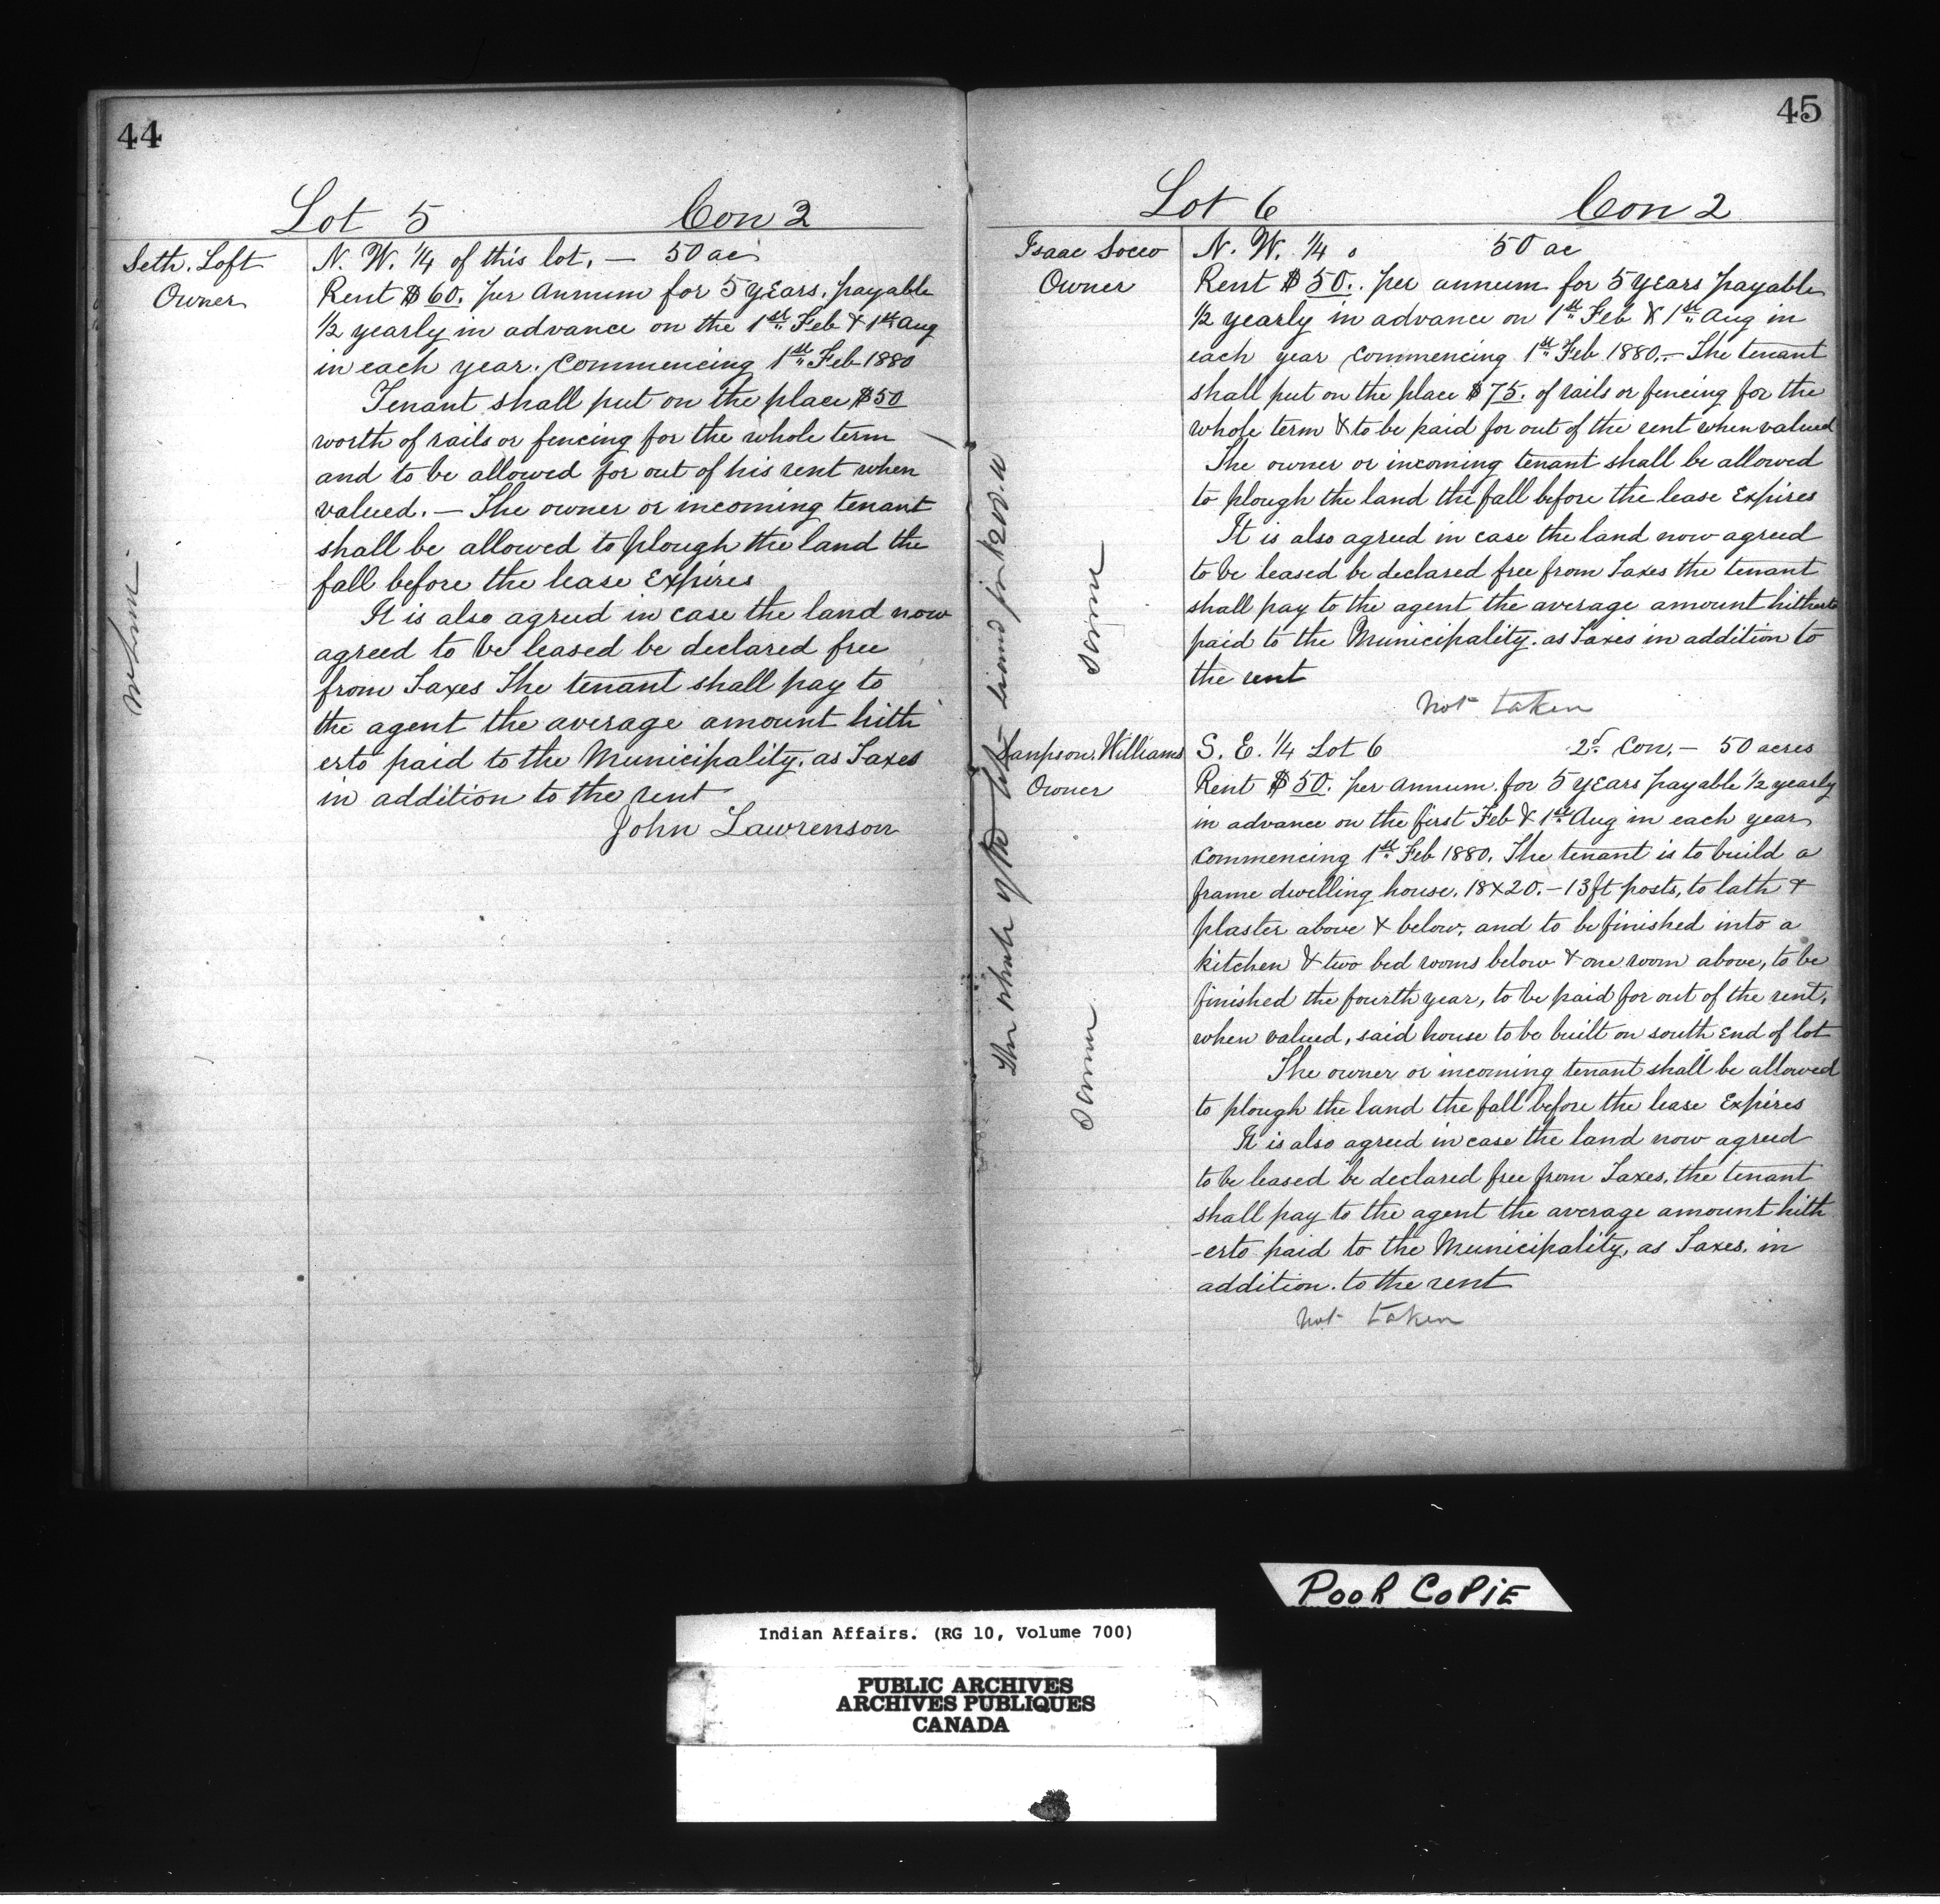 44
Lot 5 Con 2
Seth. Loft
Owner
N. W. 1/4 of this lot. — 50 ac
Rent $60. per Annum for 5 years. payable
1/2 yearly in advance on the 1st Feb & 1st Aug
in each year. Commencing 1st Feb 1880
Tenant shall put on the place $50
worth of rails or fencing for the whole term
and to be allowed for out of his rent when
valued. — The owner or incoming tenant
shall be allowed to plough the land the
fall before the lease Expires
It is also agreed in case the land now
agreed to be leased be declared free
from Taxes The tenant shall pay to
the agent the average amount hith
erto paid to the Municipality. as Taxes
in addition to the rent
John Lawrenson
45
Lot 6 Con 2
Isaac Socco
Owner
N. W. 1/4 50 ac
Rent $50.. per annum for 5 years payable
1/2 yearly in advance on 1st Feb & 1st Aug in
each year Commencing 1st Feb 1880. — The tenant
shall put on the place $75. of rails or fencing for the
whole term & to be paid for out of the rent when valued
The owner or incoming tenant shall be allowed
to plough the land the fall before the lease Expires
It is also agreed in case the land now agreed
to be leased be declared free from Taxes the tenant
shall pay to the agent the average amount hitherto
paid to the Municipality. as Taxes in addition to
the rent
not taken
Sampson. Williams
Owner
S. E. 1/4 Lot 6 2d. Con. — 50 acres
Rent $50. per Annum. for 5 years payable 1/2 yearly
in advance on the first Feb & 1st Aug in each year
Commencing 1st Feb 1880. The tenant is to build a
frame dwelling house. 18x20. — 13ft posts, to lath &
plaster above & below, and to be finished into a
kitchen & two bed rooms below & one room above, to be
finished the fourth year, to be paid for out of the rent,
when valued, said house to be built on south End of lot
The owner or incoming tenant shall be allowed
to plough the land the fall before the lease Expires
It is also agreed in case the land now agreed
to be leased be declared free from Taxes, the tenant
shall pay to the agent the average amount hith
-erto paid to the Municipality, as Taxes, in
addition. to the rent
not taken
The whole of the lot
POOR COPIE
Indian Affairs. (RG 10, Volume 700)
PUBLIC ARCHIVES
ARCHIVES PUBLIQUES
CANADA